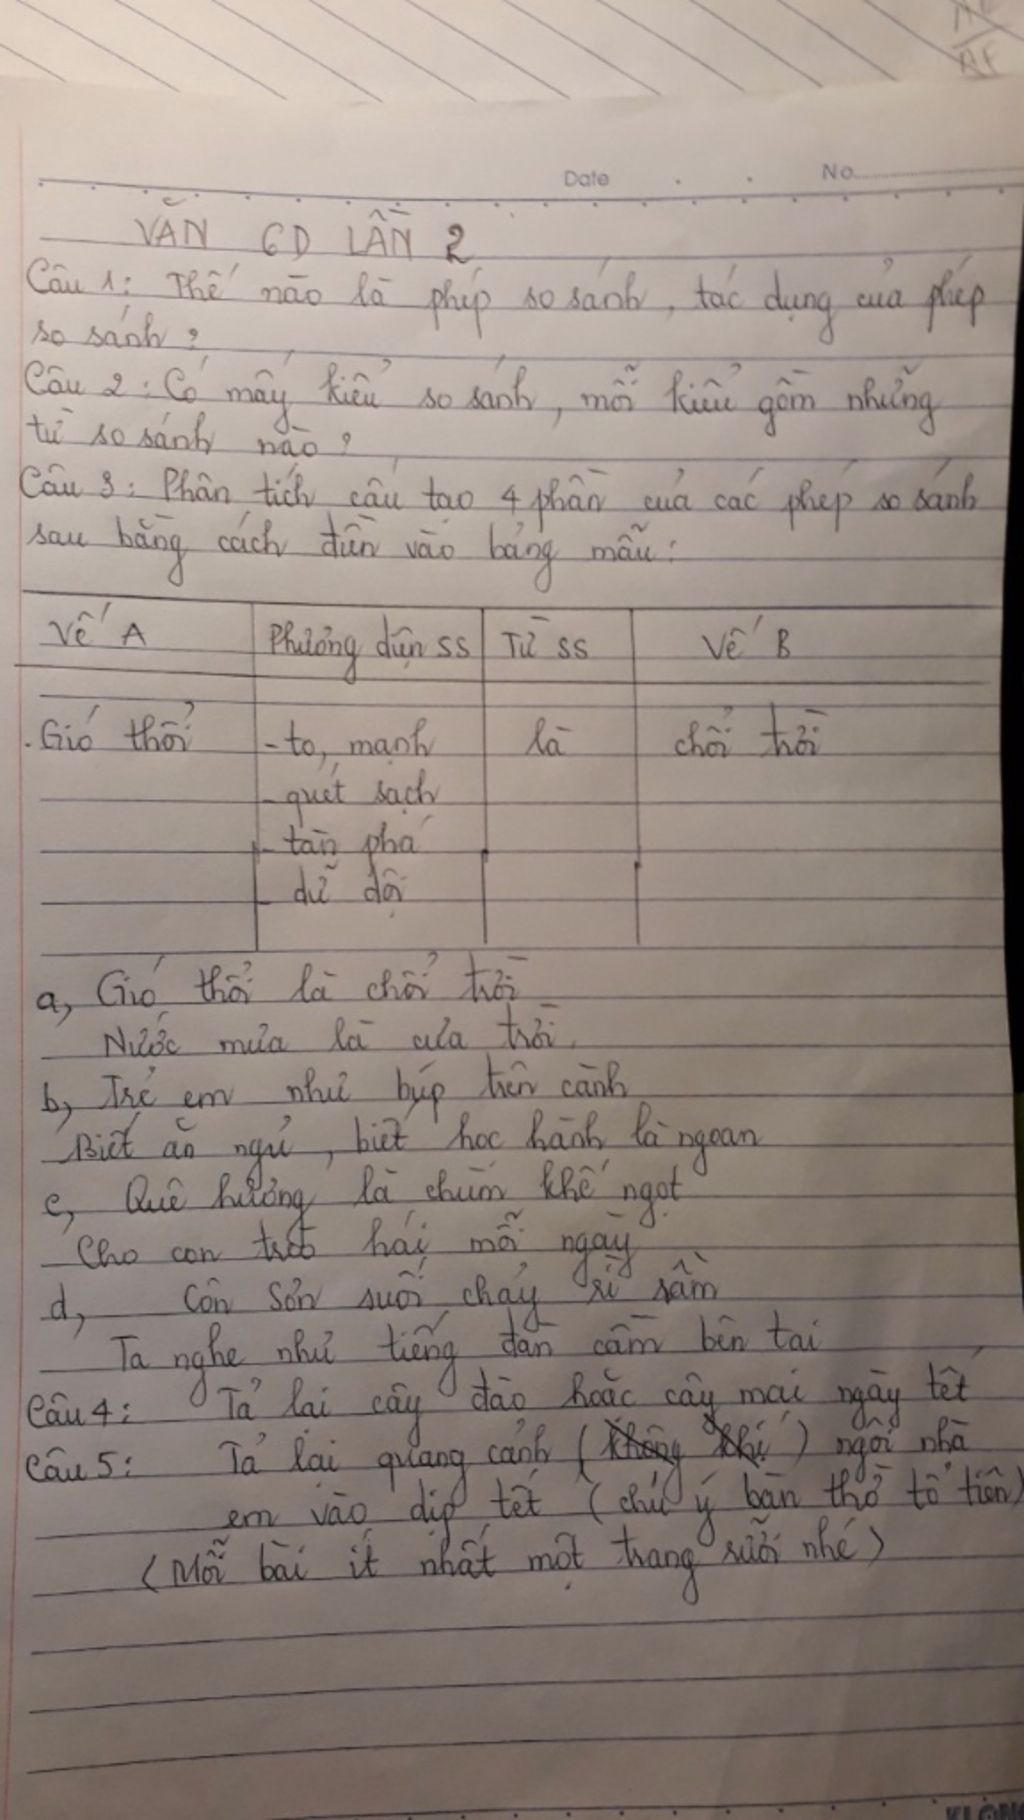 Date No.
VĂN 6D LẦN 2
Câu 1: Thế nào là phép so sánh, tác dụng của phép
so sánh?
Câu 2: Có mấy kiểu so sánh, mỗi kiểu gồm những
từ so sánh nào?
Câu 3: Phân tích cấu tạo 4 phần của các phép so sánh
sau bằng cách điền vào bảng mẫu:
Vế A Phương diện SS Từ SS Vế B
- Gió thổi - to, mạnh là chổi trời
- quét sạch
- tàn phá
- dữ dội
a, Gió thổi là chổi trời
Nước mưa là cưa trời.
b, Trẻ em như búp trên cành
Biết ăn ngủ, biết học hành là ngoan
c, Quê hương là chùm khế ngọt
Cho con trèo hái mỗi ngày
d, Côn Sơn suối chảy rì rầm
Ta nghe như tiếng đàn cầm bên tai
Câu 4: Tả lại cây đào hoặc cây mai ngày tết
Câu 5: Tả lại quang cảnh (không khí) ngôi nhà
em vào dịp tết (chú ý bàn thờ tổ tiên)
(Mỗi bài ít nhất một trang rưỡi nhé)